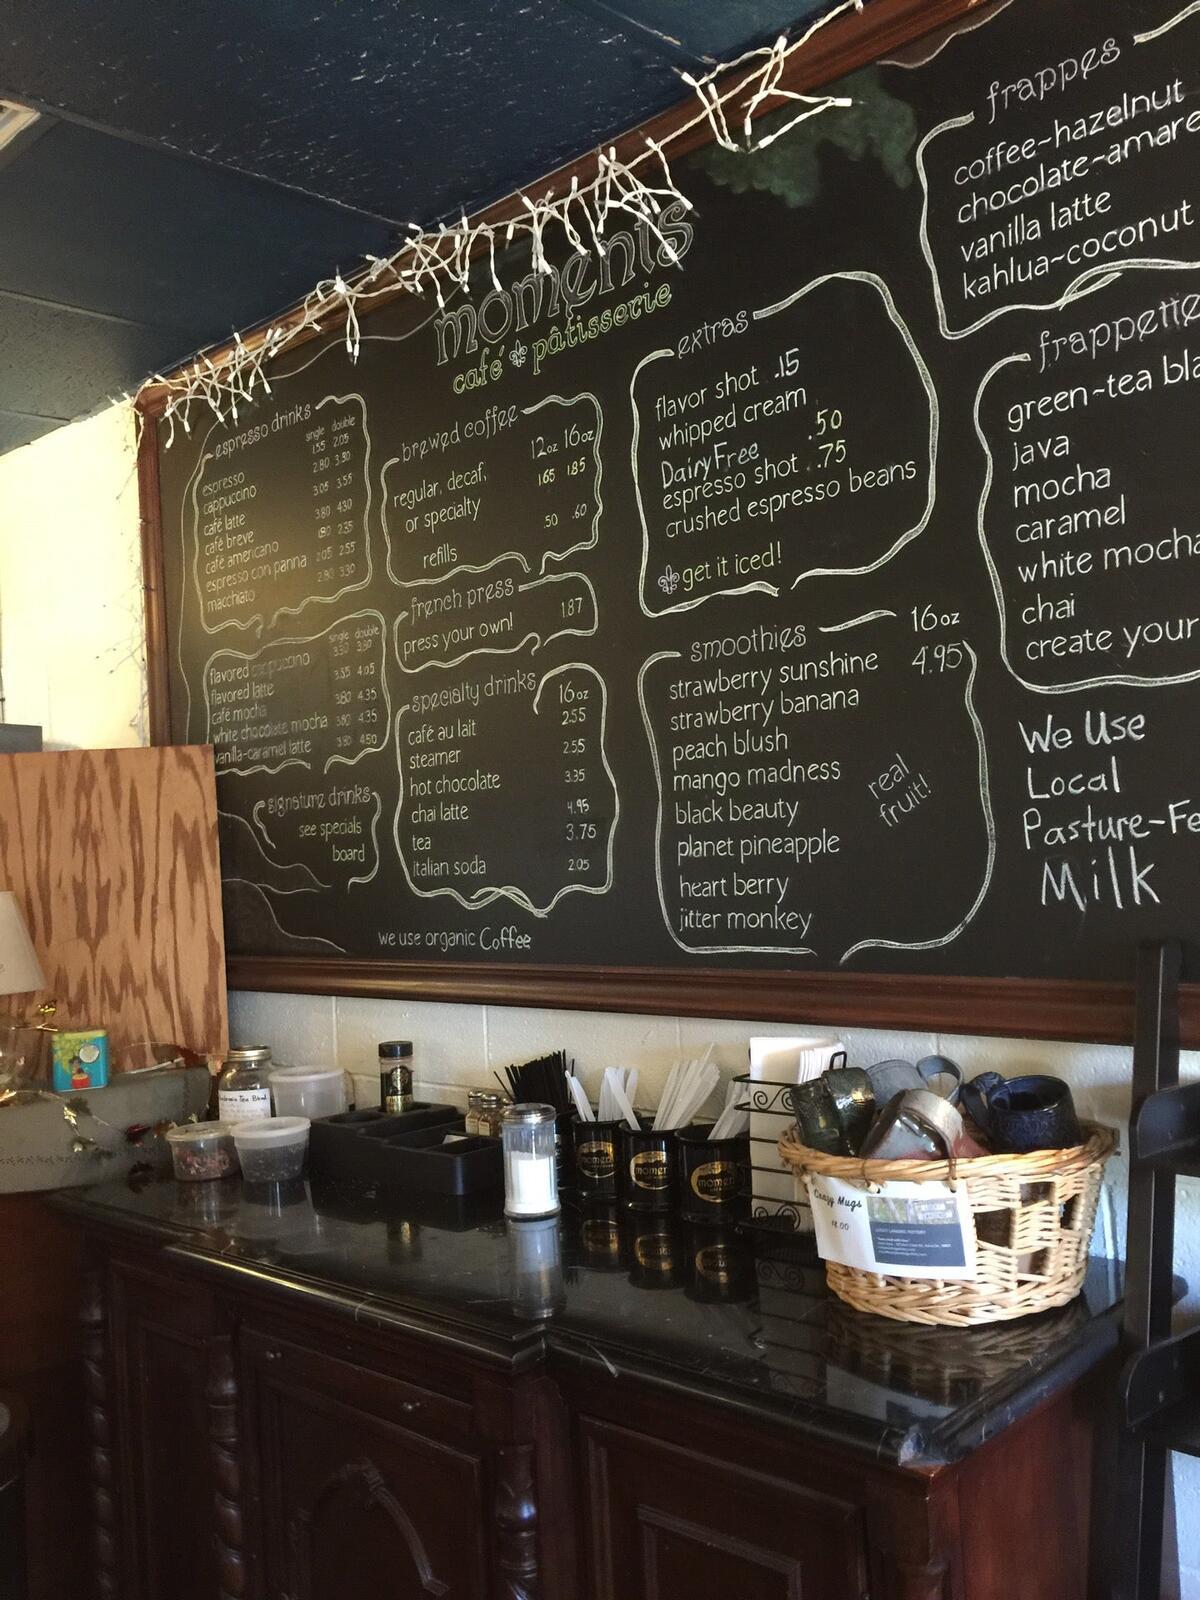 moments
café pâtisserie
espresso drinks
single double
espresso 1.55 2.05
cappuccino 2.80 3.30
café latte 3.05 3.55
café breve 3.80 4.30
café americano 1.80 2.35
espresso con panna 2.05 2.55
macchiato 2.80 3.30
single double
flavored cappuccino 3.30 3.80
flavored latte 3.55 4.05
café mocha 3.80 4.35
white chocolate mocha 3.80 4.35
vanilla-caramel latte 3.80 4.50
signature drinks
see specials
board
brewed coffee
12oz 16oz
regular, decaf, 1.65 1.85
or specialty
refills .50 .60
french press
press your own! 1.87
specialty drinks
16oz
café au lait 2.55
steamer 2.55
hot chocolate 3.35
chai latte 4.95
tea 3.75
italian soda 2.05
we use organic Coffee
extras
flavor shot .15
whipped cream
Dairy Free .50
espresso shot .75
crushed espresso beans
get it iced!
smoothies 16oz
strawberry sunshine 4.95
strawberry banana
peach blush
mango madness
black beauty
planet pineapple
heart berry
jitter monkey
real
fruit!
frappes
coffee~hazelnut
chocolate~amare
vanilla latte
kahlua~coconut
frappette
green~tea bla
java
mocha
caramel
white mocha
chai
create your
We Use
Local
Pasture-Fe
Milk
Tea Blend
momen
momen
momen
Crazy Mugs